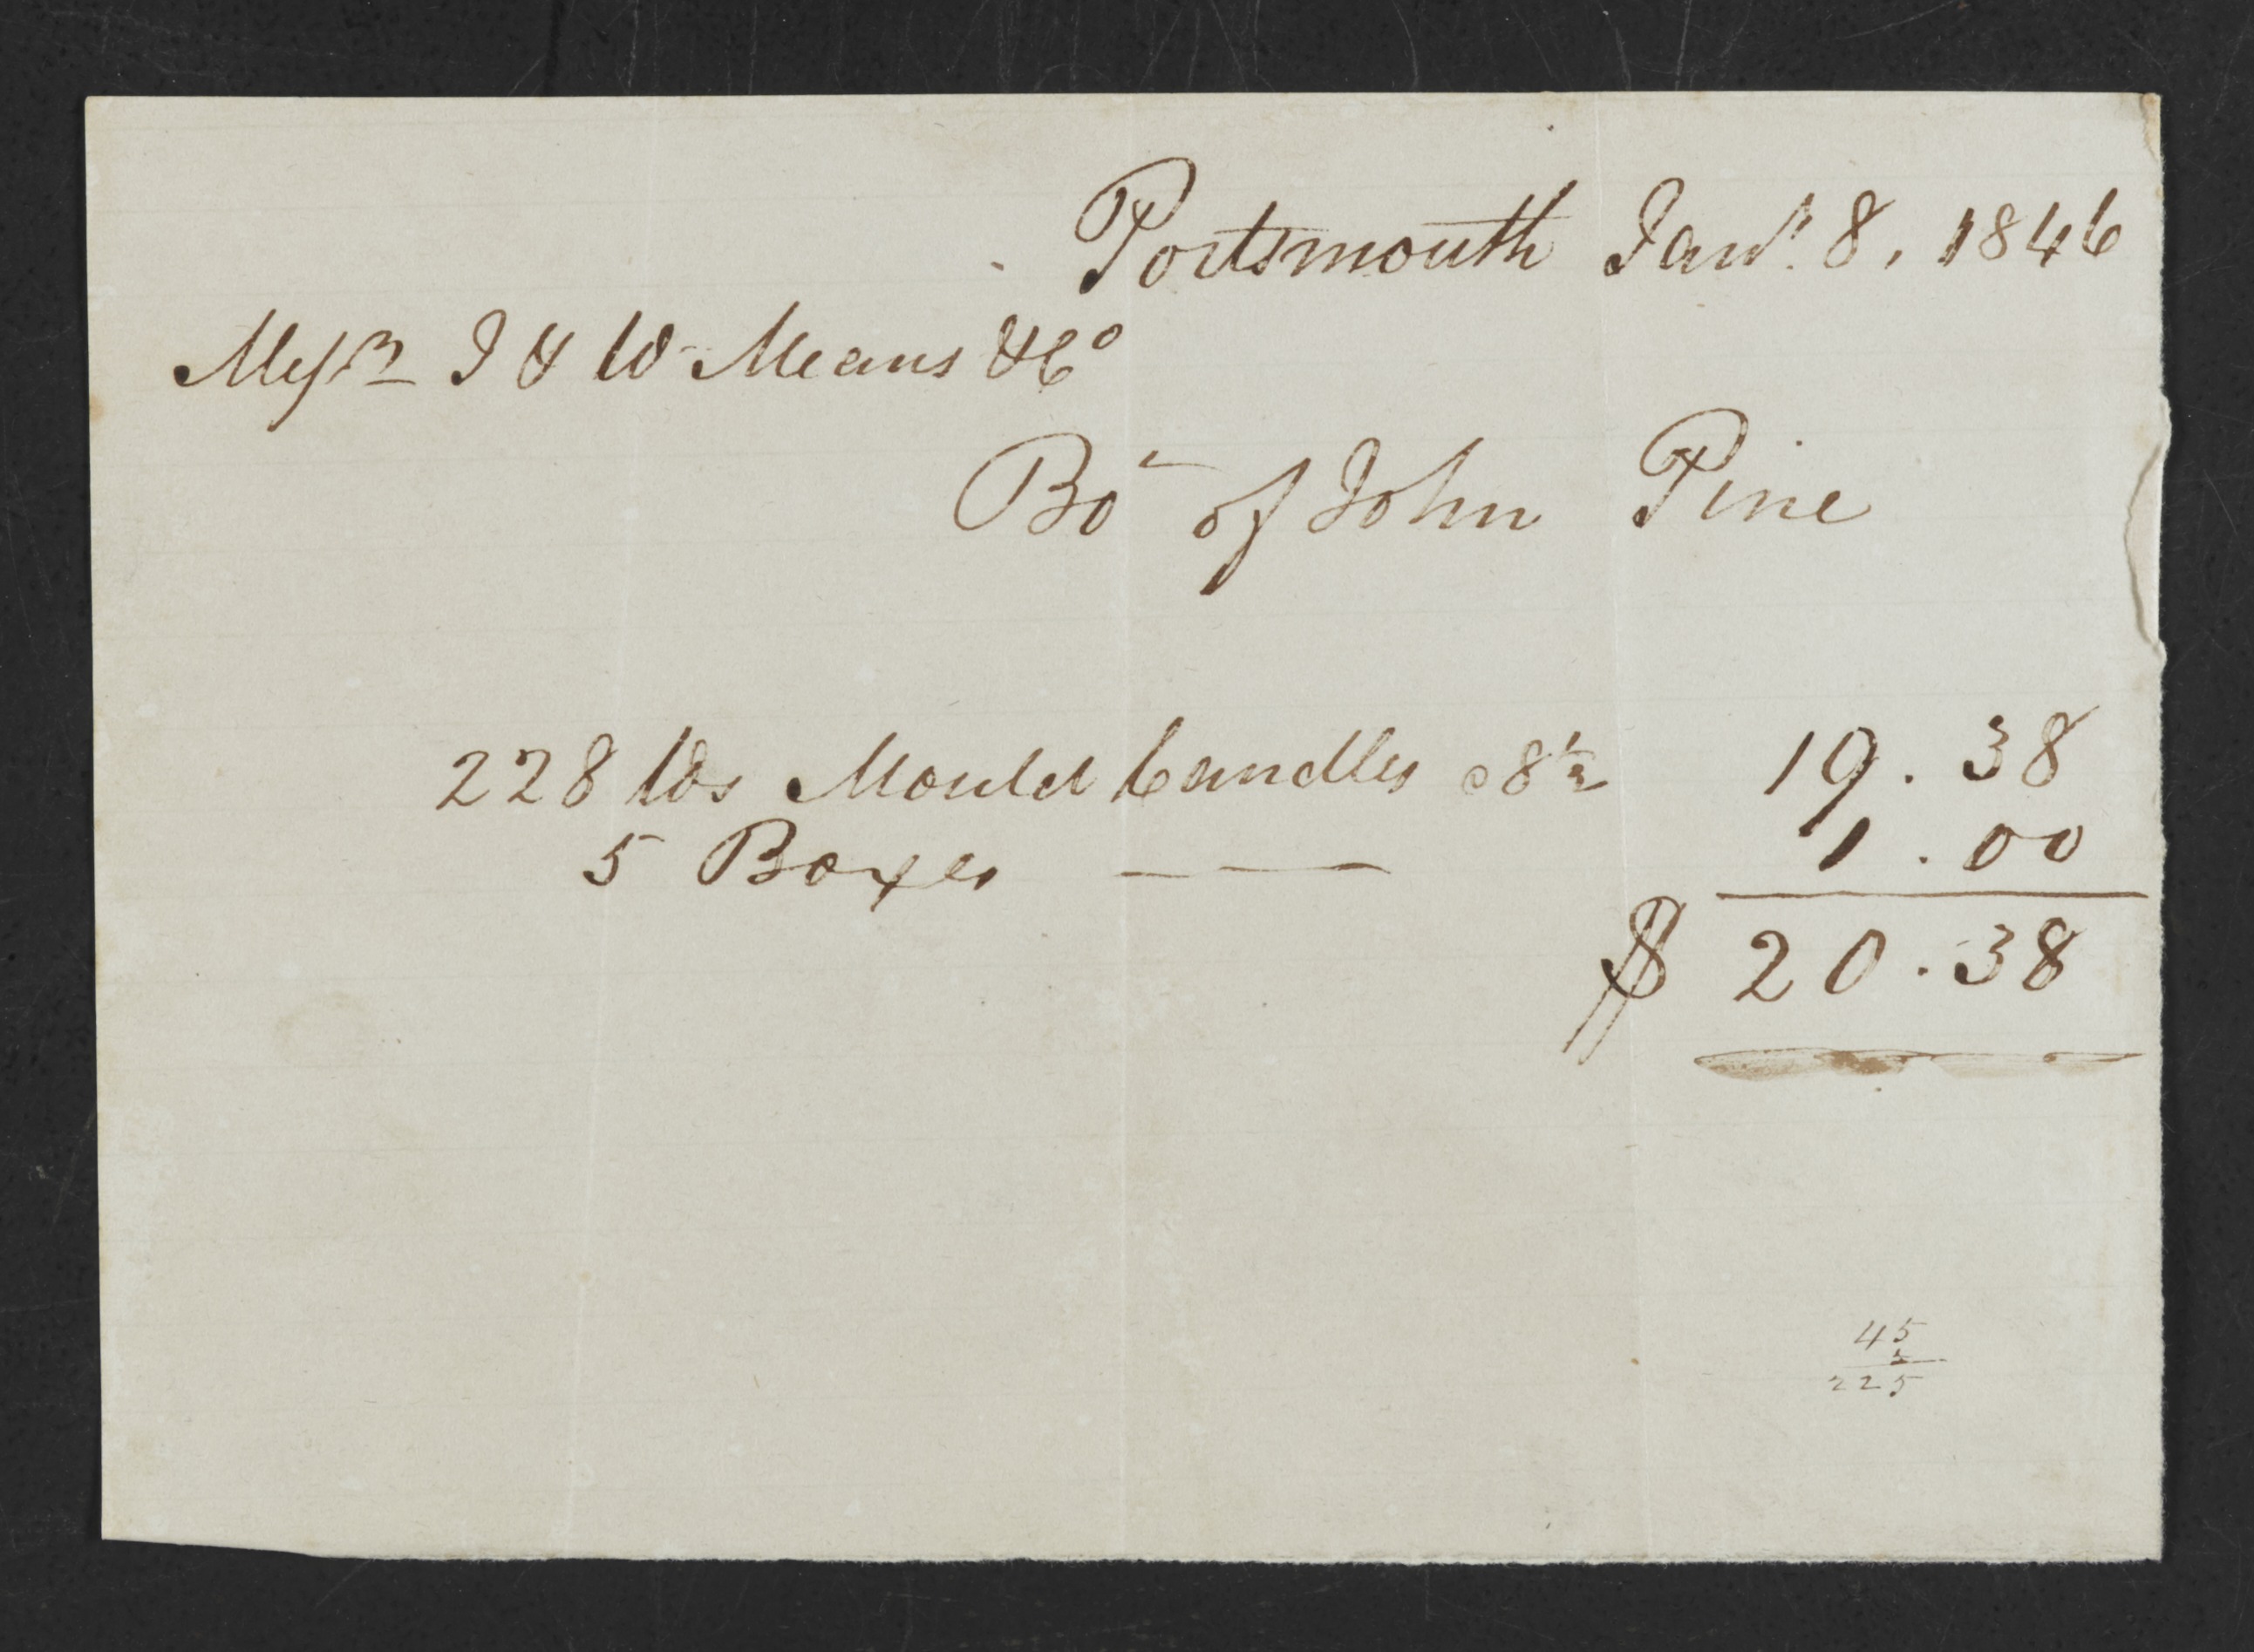 Portsmouth Jany. 8, 1846
Messrs J & W Means & Co
Bot of John Pine
228 lbs Mould Candles @ 8 1/2 19.38
5 Boxes — 1.00
$ 20.38
45
5
225